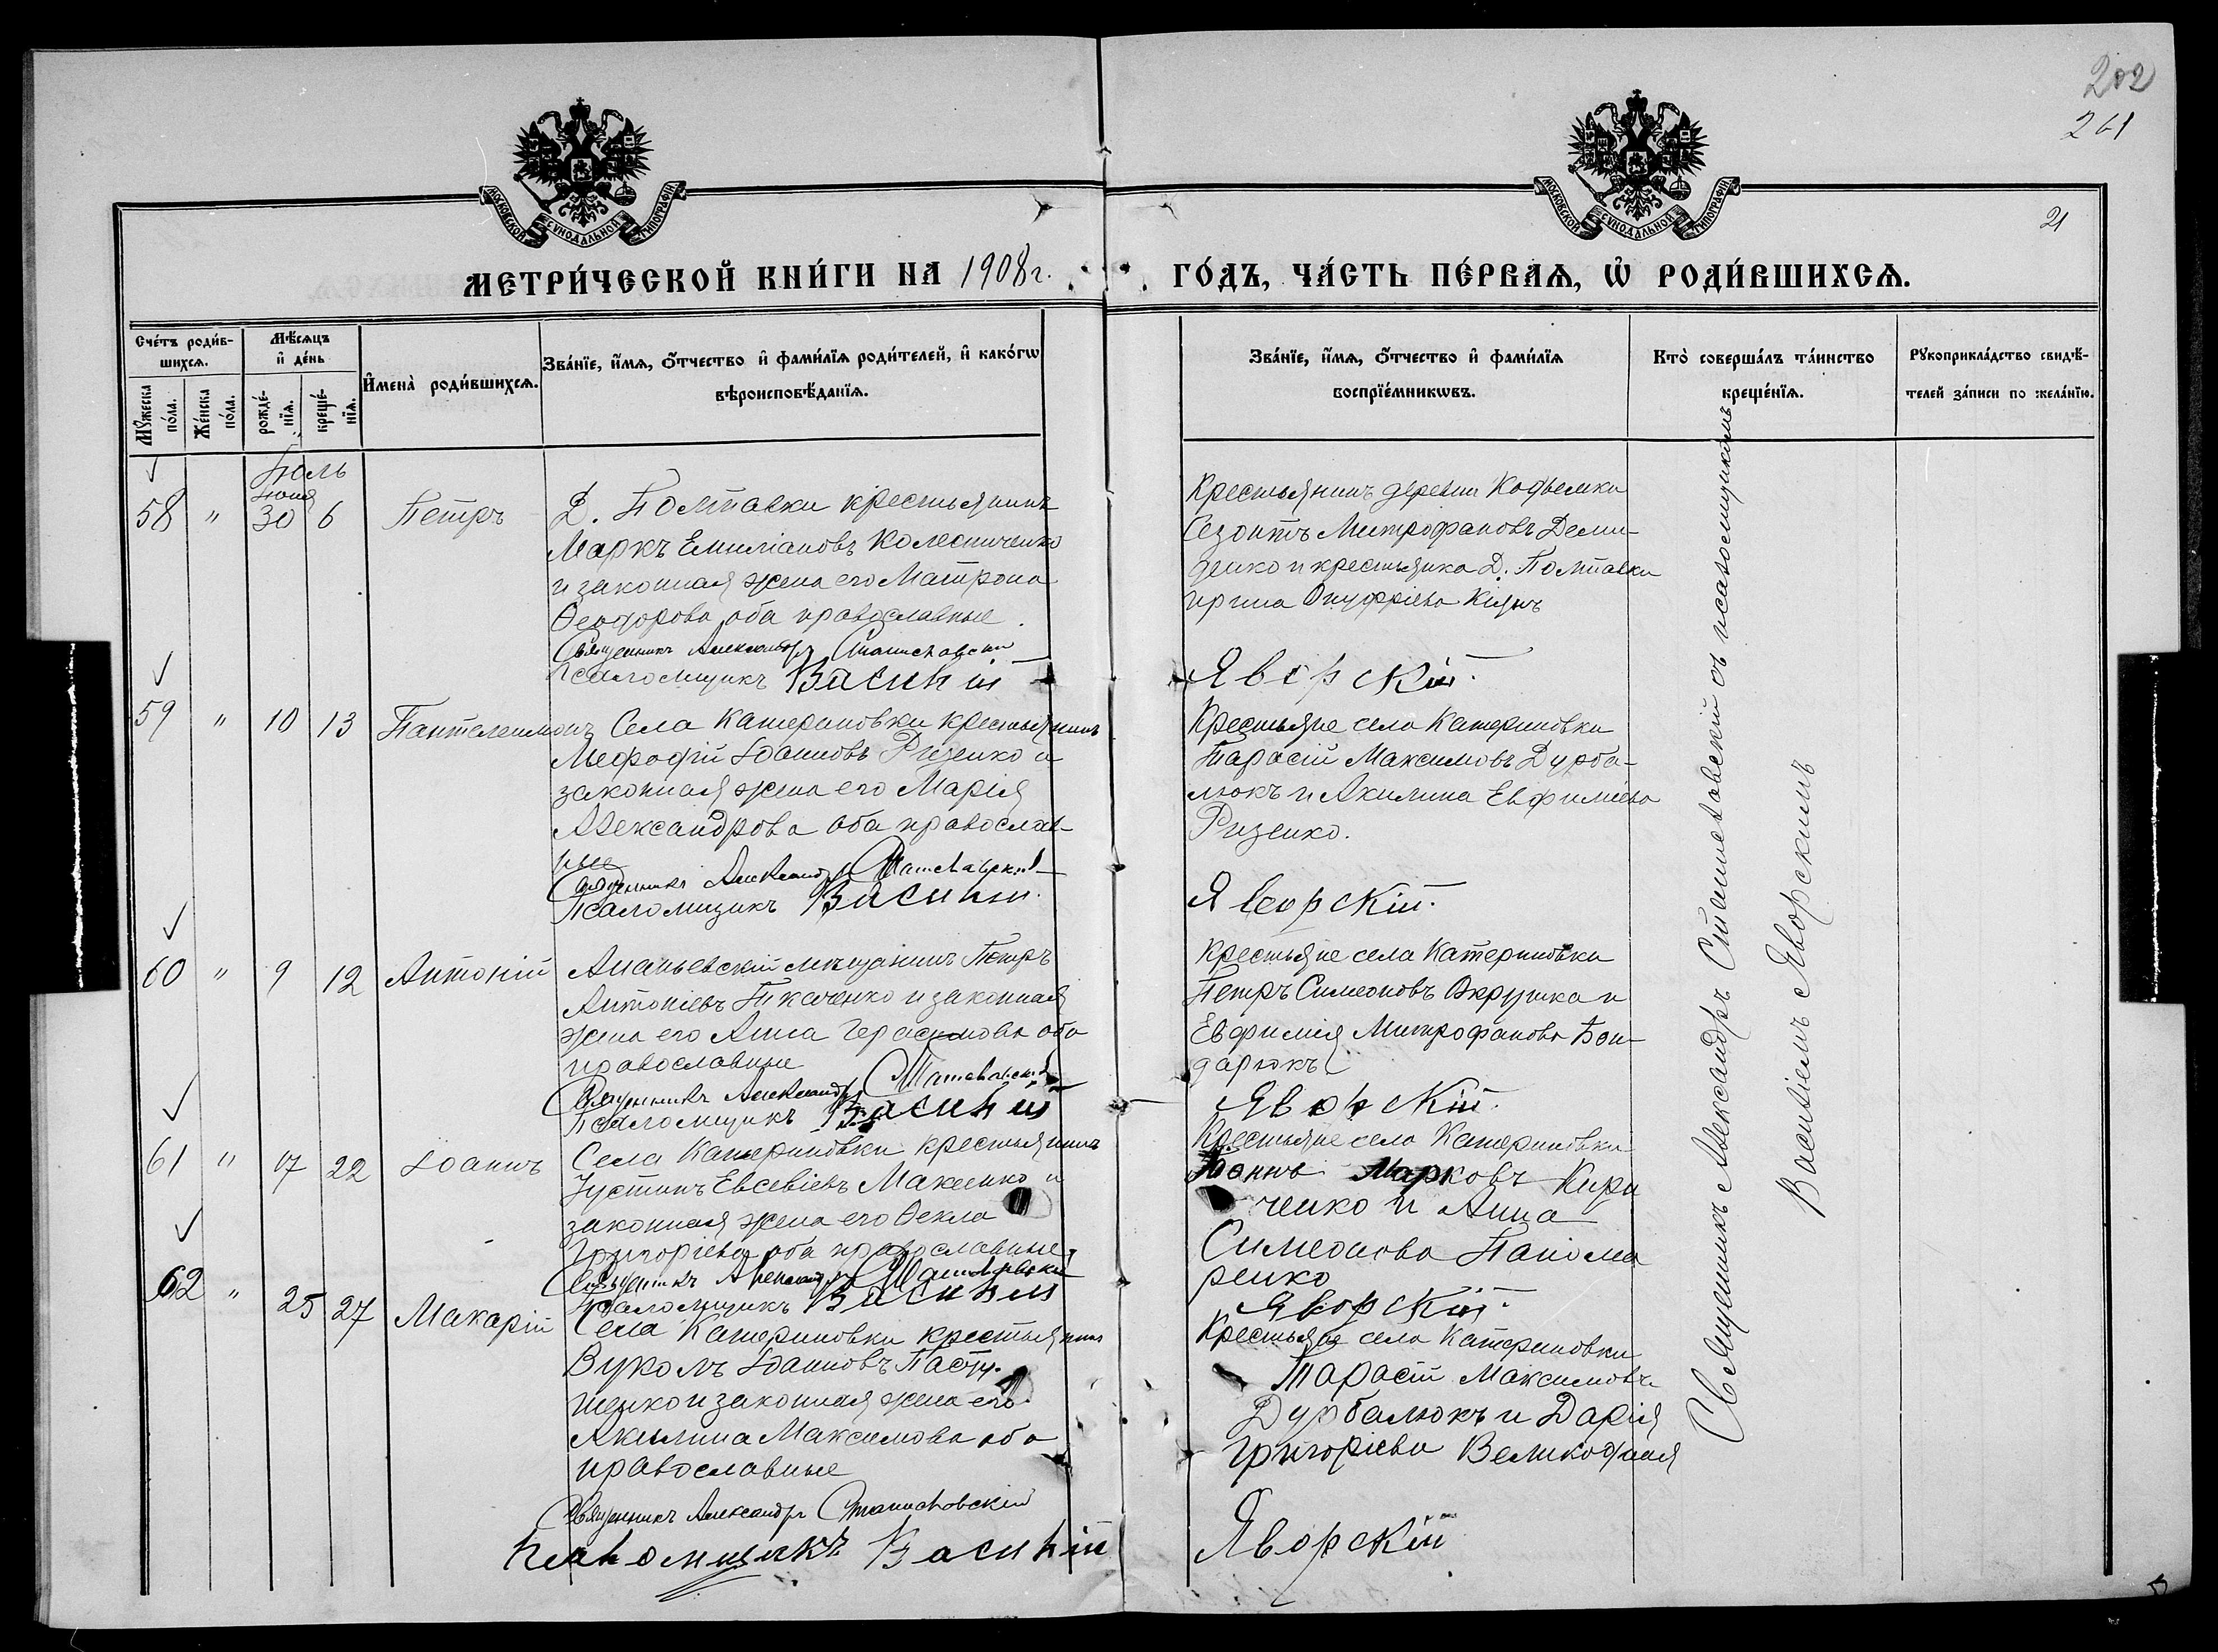 202
261
21
МОСКОВСКОЙ СѴНОДАЛЬНОЙ ТИПОГРАФІИ
МОСКОВСКОЙ СѴНОДАЛЬНОЙ ТИПОГРАФІИ
МЕТРИ́ЧЕСКОЙ КНИ́ГИ НА 1908 г.
ГО́ДЪ, ЧА́СТЬ ПЕ́РВАѦ, Ѡ РОДИ́ВШИХСѦ.
Сче́тъ роди́в-
шихсѧ.
Мꙋ́жеска по́ла.
Же́нска по́ла.
Мѣ́сѧцъ
и де́нь
рожде́-
нїѧ.
креще́-
нїѧ.
Имена̀ роди́вшихсѧ.
Зва́нїе, и́мѧ, о́тчество и фами́лїѧ роди́телей, и како́гѡ
вѣроисповѣ́данїѧ.
Зва́нїе, и́мѧ, о́тчество и фами́лїѧ
воспрїе́мникѡвъ.
Кто̀ соверша́лъ та́инство
креще́нїѧ.
Рꙋкоприкла́дство свидѣ́-
телей за́писи по жела́нїю.
Іюль
Іюня
58 " 30 6 Петръ
Д. Полтавки крестьянинъ
Маркъ Емиліановъ Колесниченко
и законная жена его Матрона
Ѳеодорова оба православные.
Священникъ Александръ Станиславскій
Псаломщикъ Василій
Крестьянинъ деревни Кодьемки
Созонтъ Митрофановъ Деми-
денко и крестьянка Д. Полтавки
Ирина Онуфріева Киянъ
Яворскій.
59 " 10 13 Пантелеимонъ
Села Катериновки крестьянинъ
Меѳодій Іоанновъ Ризенко и
законная жена его Марія
Александрова оба православ-
ные
Священникъ Александръ Станиславскій
Псаломщикъ Василій.
Крестьяне села Катериновки
Тарасій Максимовъ Дурба-
люкъ и Акилина Евфиміева
Ризенко.
Яворскій.
60 " 9 12 Антоній
Ананьевскій мѣщанинъ Петръ
Антоніевъ Ткаченко и законная
жена его Анна Герасимова оба
православные
Священникъ Александръ Станиславскій
Псаломщикъ Василій
Крестьяне села Катериновки
Петръ Симеоновъ Окрушка и
Евфимія Митрофанова Бон-
дарюкъ
Яворскій.
61 " 17 22 Іоаннъ
Села Катериновки крестьянинъ
Іустинъ Евсевіевъ Макеенко и
законная жена его Ѳекла
Григоріева оба православные.
Священникъ Александръ Станиславскій
Псаломщикъ Василій
Крестьяне села Катериновки
Іоаннъ Марковъ Кири
ченко и Анна
Симеонова Паномa
ренко
Яворскій.
62 " 25 27 Макарій
Села Катериновки крестьянинъ
Вуколъ Іоанновъ Пасту-
шенко и законная жена его
Акилина Максимова оба
православные
Священникъ Александръ Станиславскій
Псаломщикъ Василій
Крестьяне села Катериновки
Тарасій Максимовъ
Дурбалюкъ и Дарія
Григоріева Великодная
Яворскій
Священникъ Александръ Станиславскій съ псаломщикомъ
Василіемъ Яворскимъ